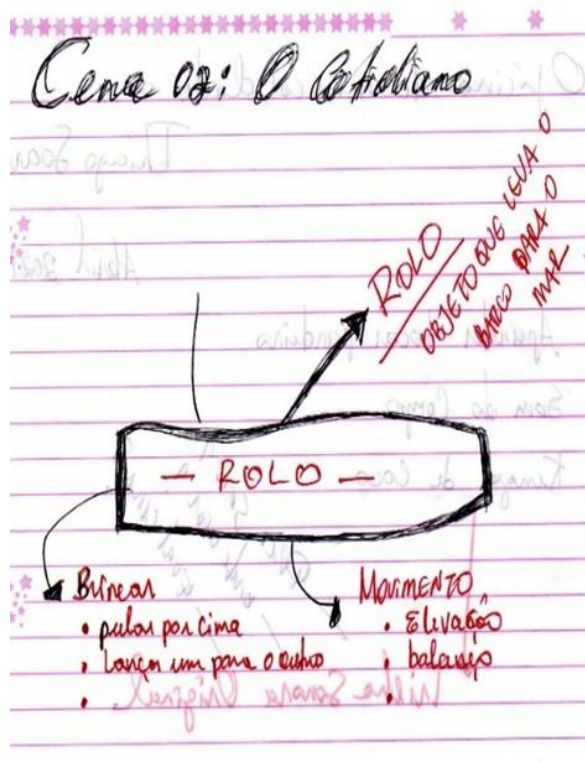 Cena 02: O Cotidiano
ROLO
OBJETO QUE LEVA O
BARCO PARA O
MAR
— ROLO —
Brincar
• pular por cima
• lançar um para o outro
•
MOVIMENTO
• Elevação
• balanço
•
Trilha Sonora Original